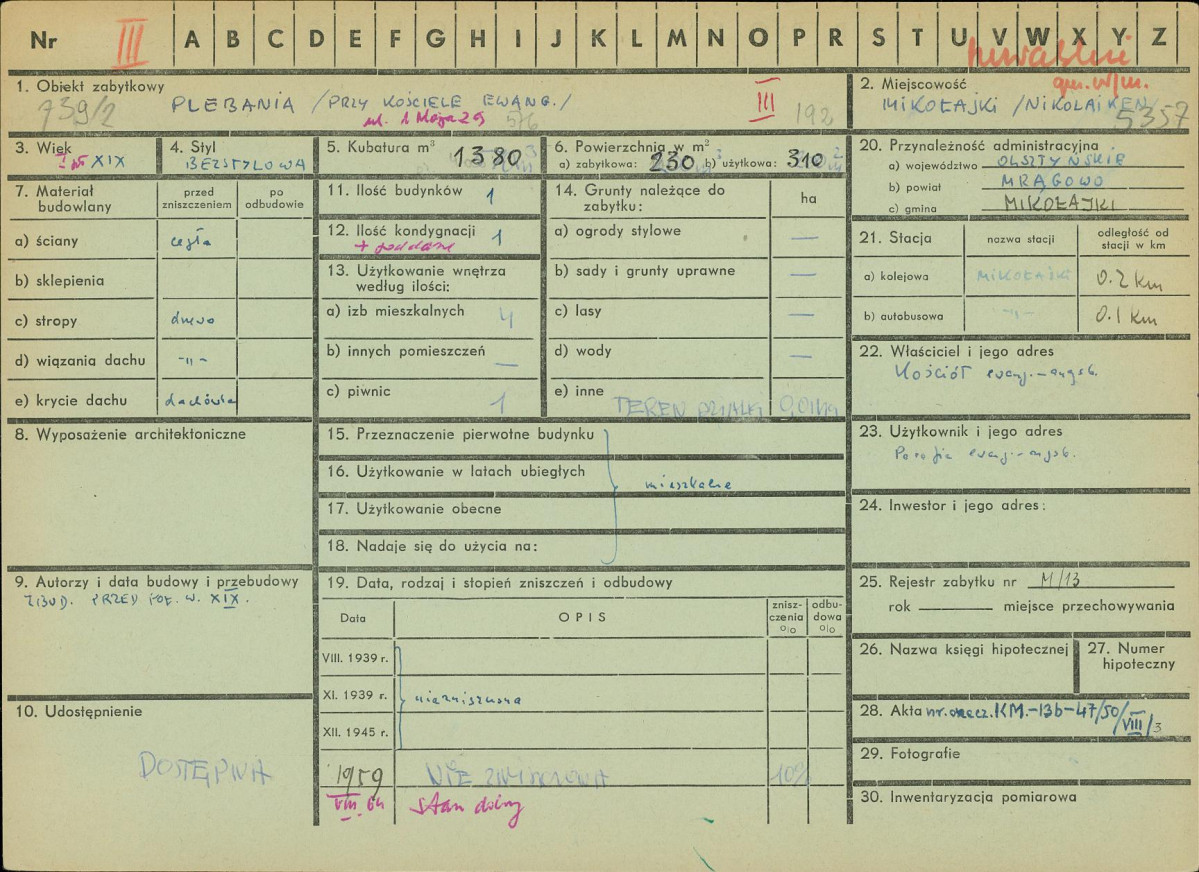 Nr III A B C D E F G H I J K L M N O P R S T U V W X Y Z
1. Obiekt zabytkowy
739/2 PLEBANIA /PRZY KOŚCIELE EWANG./ III 192
ul. 1 Maja 29 576
2. Miejscowość gm. w/m.
MIKOŁAJKI /NIKOLAIKEN/
5357
3. Wiek
XIX
4. Styl
BEZSTYLOWA
5. Kubatura m³
1380
6. Powierzchnia w m²
a) zabytkowa: 230 b) użytkowa: 310
20. Przynależność administracyjna
a) województwo OLSZTYŃSKIE
b) powiat MRĄGOWO
c) gmina MIKOŁAJKI
7. Materiał budowlany
przed zniszczeniem
po odbudowie
a) ściany cegła
b) sklepienia
c) stropy drewo
d) wiązania dachu -"-
e) krycie dachu dachówka
11. Ilość budynków 1
12. Ilość kondygnacji 1
+ poddasze
13. Użytkowanie wnętrza
według ilości:
a) izb mieszkalnych 4
b) innych pomieszczeń —
c) piwnic 1
14. Grunty należące do
zabytku: ha
a) ogrody stylowe —
b) sady i grunty uprawne —
c) lasy —
d) wody —
e) inne TEREN DZIAŁKI
21. Stacja
nazwa stacji
odległość od
stacji w km
a) kolejowa MIKOŁAJKI 0.2 km
b) autobusowa -"- 0.1 km
22. Właściciel i jego adres
Kościół ewang.-augsb.
23. Użytkownik i jego adres
Parafia ewang.-augsb.
24. Inwestor i jego adres:
8. Wyposażenie architektoniczne
15. Przeznaczenie pierwotne budynku
16. Użytkowanie w latach ubiegłych
mieszkalne
17. Użytkowanie obecne
18. Nadaje się do użycia na:
9. Autorzy i data budowy i przebudowy
ZBUD. PRZED POŁ. W. XIX.
19. Data, rodzaj i stopień zniszczeń i odbudowy
Data OPIS
znisz-
czenia
%
odbu-
dowa
%
VIII. 1939 r.
XI. 1939 r. niezniszczona
XII. 1945 r.
1959 NIE ZNISZCZONA 10%
VIII. 64 stan dobry
10. Udostępnienie
DOSTĘPNA
25. Rejestr zabytku nr M/13
rok miejsce przechowywania
26. Nazwa księgi hipotecznej
27. Numer
hipoteczny
28. Akta nr. oznacz. KM.-13b-47/50/VIII/3
29. Fotografie
30. Inwentaryzacja pomiarowa